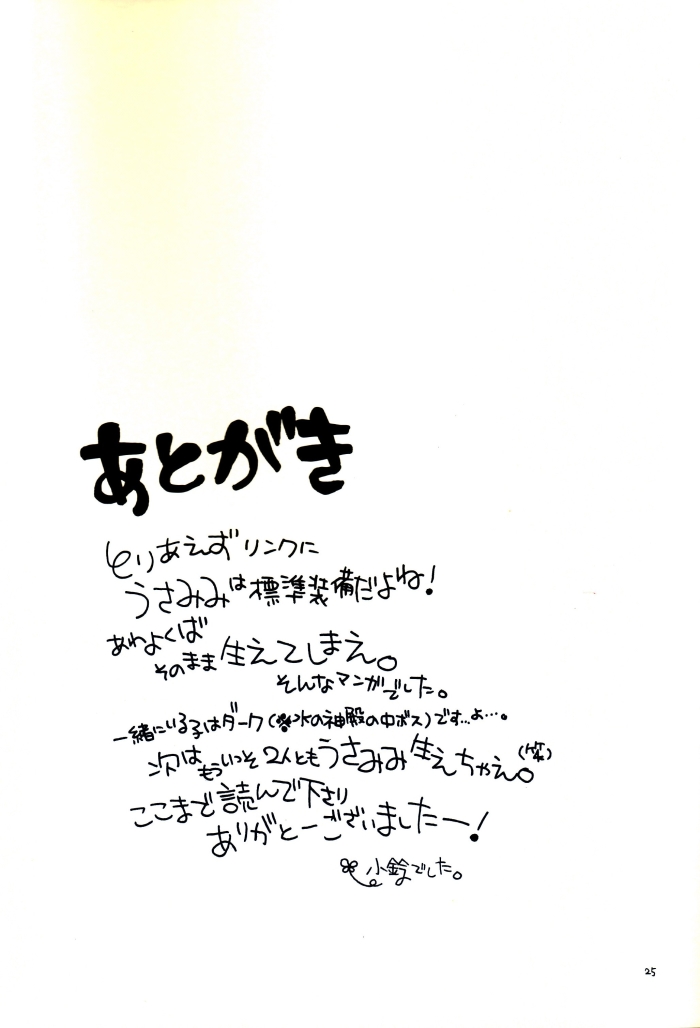 あとがき
とりあえずリンクに
うさみみは標準装備だよね！
あわよくば
そのまま生えてしまえ。
そんなマンガでした。
一緒にいる子はダーク(水の神殿の中ボス)です…よ…。
次はもういっそ2人ともうさみみ生えちゃえ。(笑)
ここまで読んで下さり
ありがとーございましたー！
小鈴でした。
25